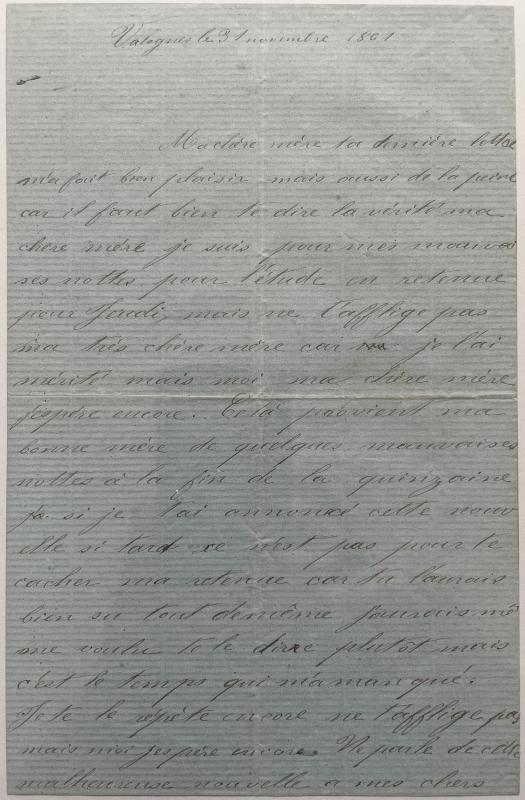 Valognes le 31 novembre 1861
Ma chère mère ta dernière lettre
m'a fait bien plaisir mais aussi de la peine
car il faut bien te dire la vérité ma
chère mère je suis pour mes mauvai
ses nottes pour l'étude en retenue
pour Jeudi, mais ne t'afflige pas
ma très chère mère car je l'ai
mérité mais moi ma chère mère
j'espère encore. Cela provient ma
bonne mère de quelques mauvaises
nottes à la fin de la quinzaine
si je t'ai annoncé cette nouv
elle si tard ce n'est pas pour te
cacher ma retenue car tu l'aurais
bien su tout demême j'aurais mê
me voulu te le dire plutôt mais
c'est le temps qui m'a manqué.
Je te le répète encore ne t'afflige pas
mais moi j'espère encore Ne parle de cette
malhaureuse nouvelle a mes chers